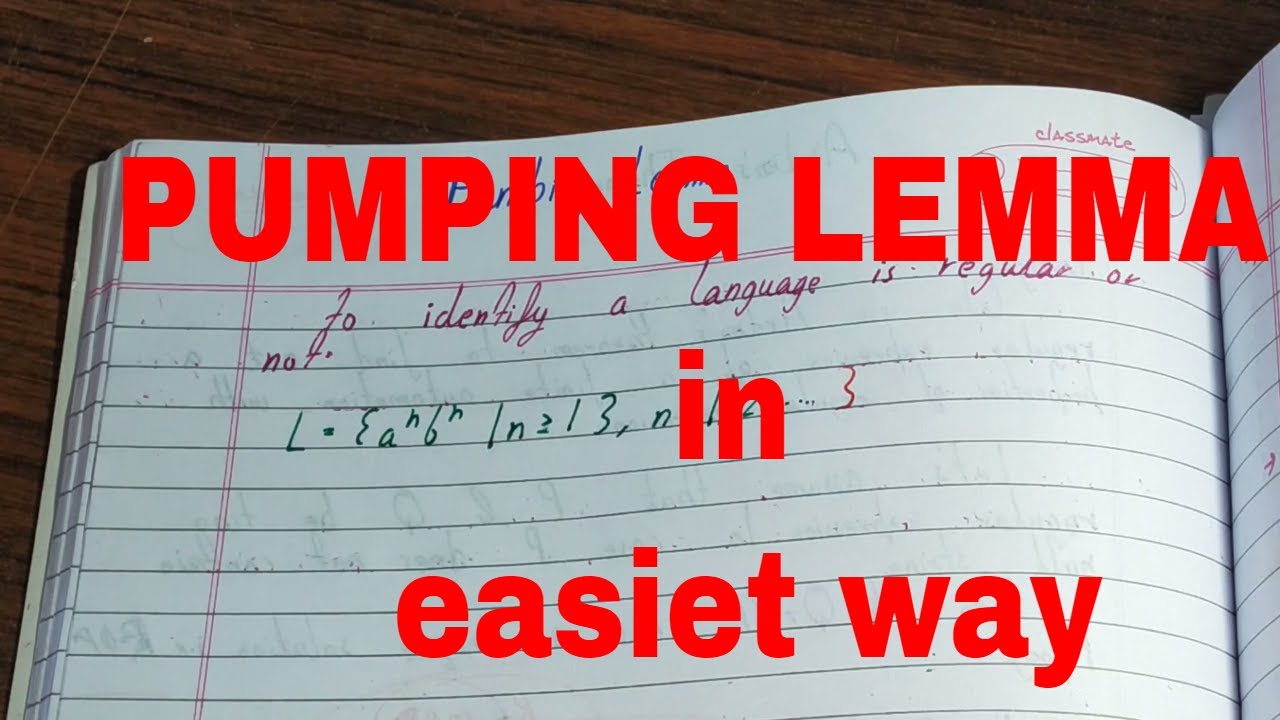 classmate
PUMPING LEMMA
To identify a language is regular or
not.
in
L = {aⁿbⁿ | n ≥ 1}, n
easiet way